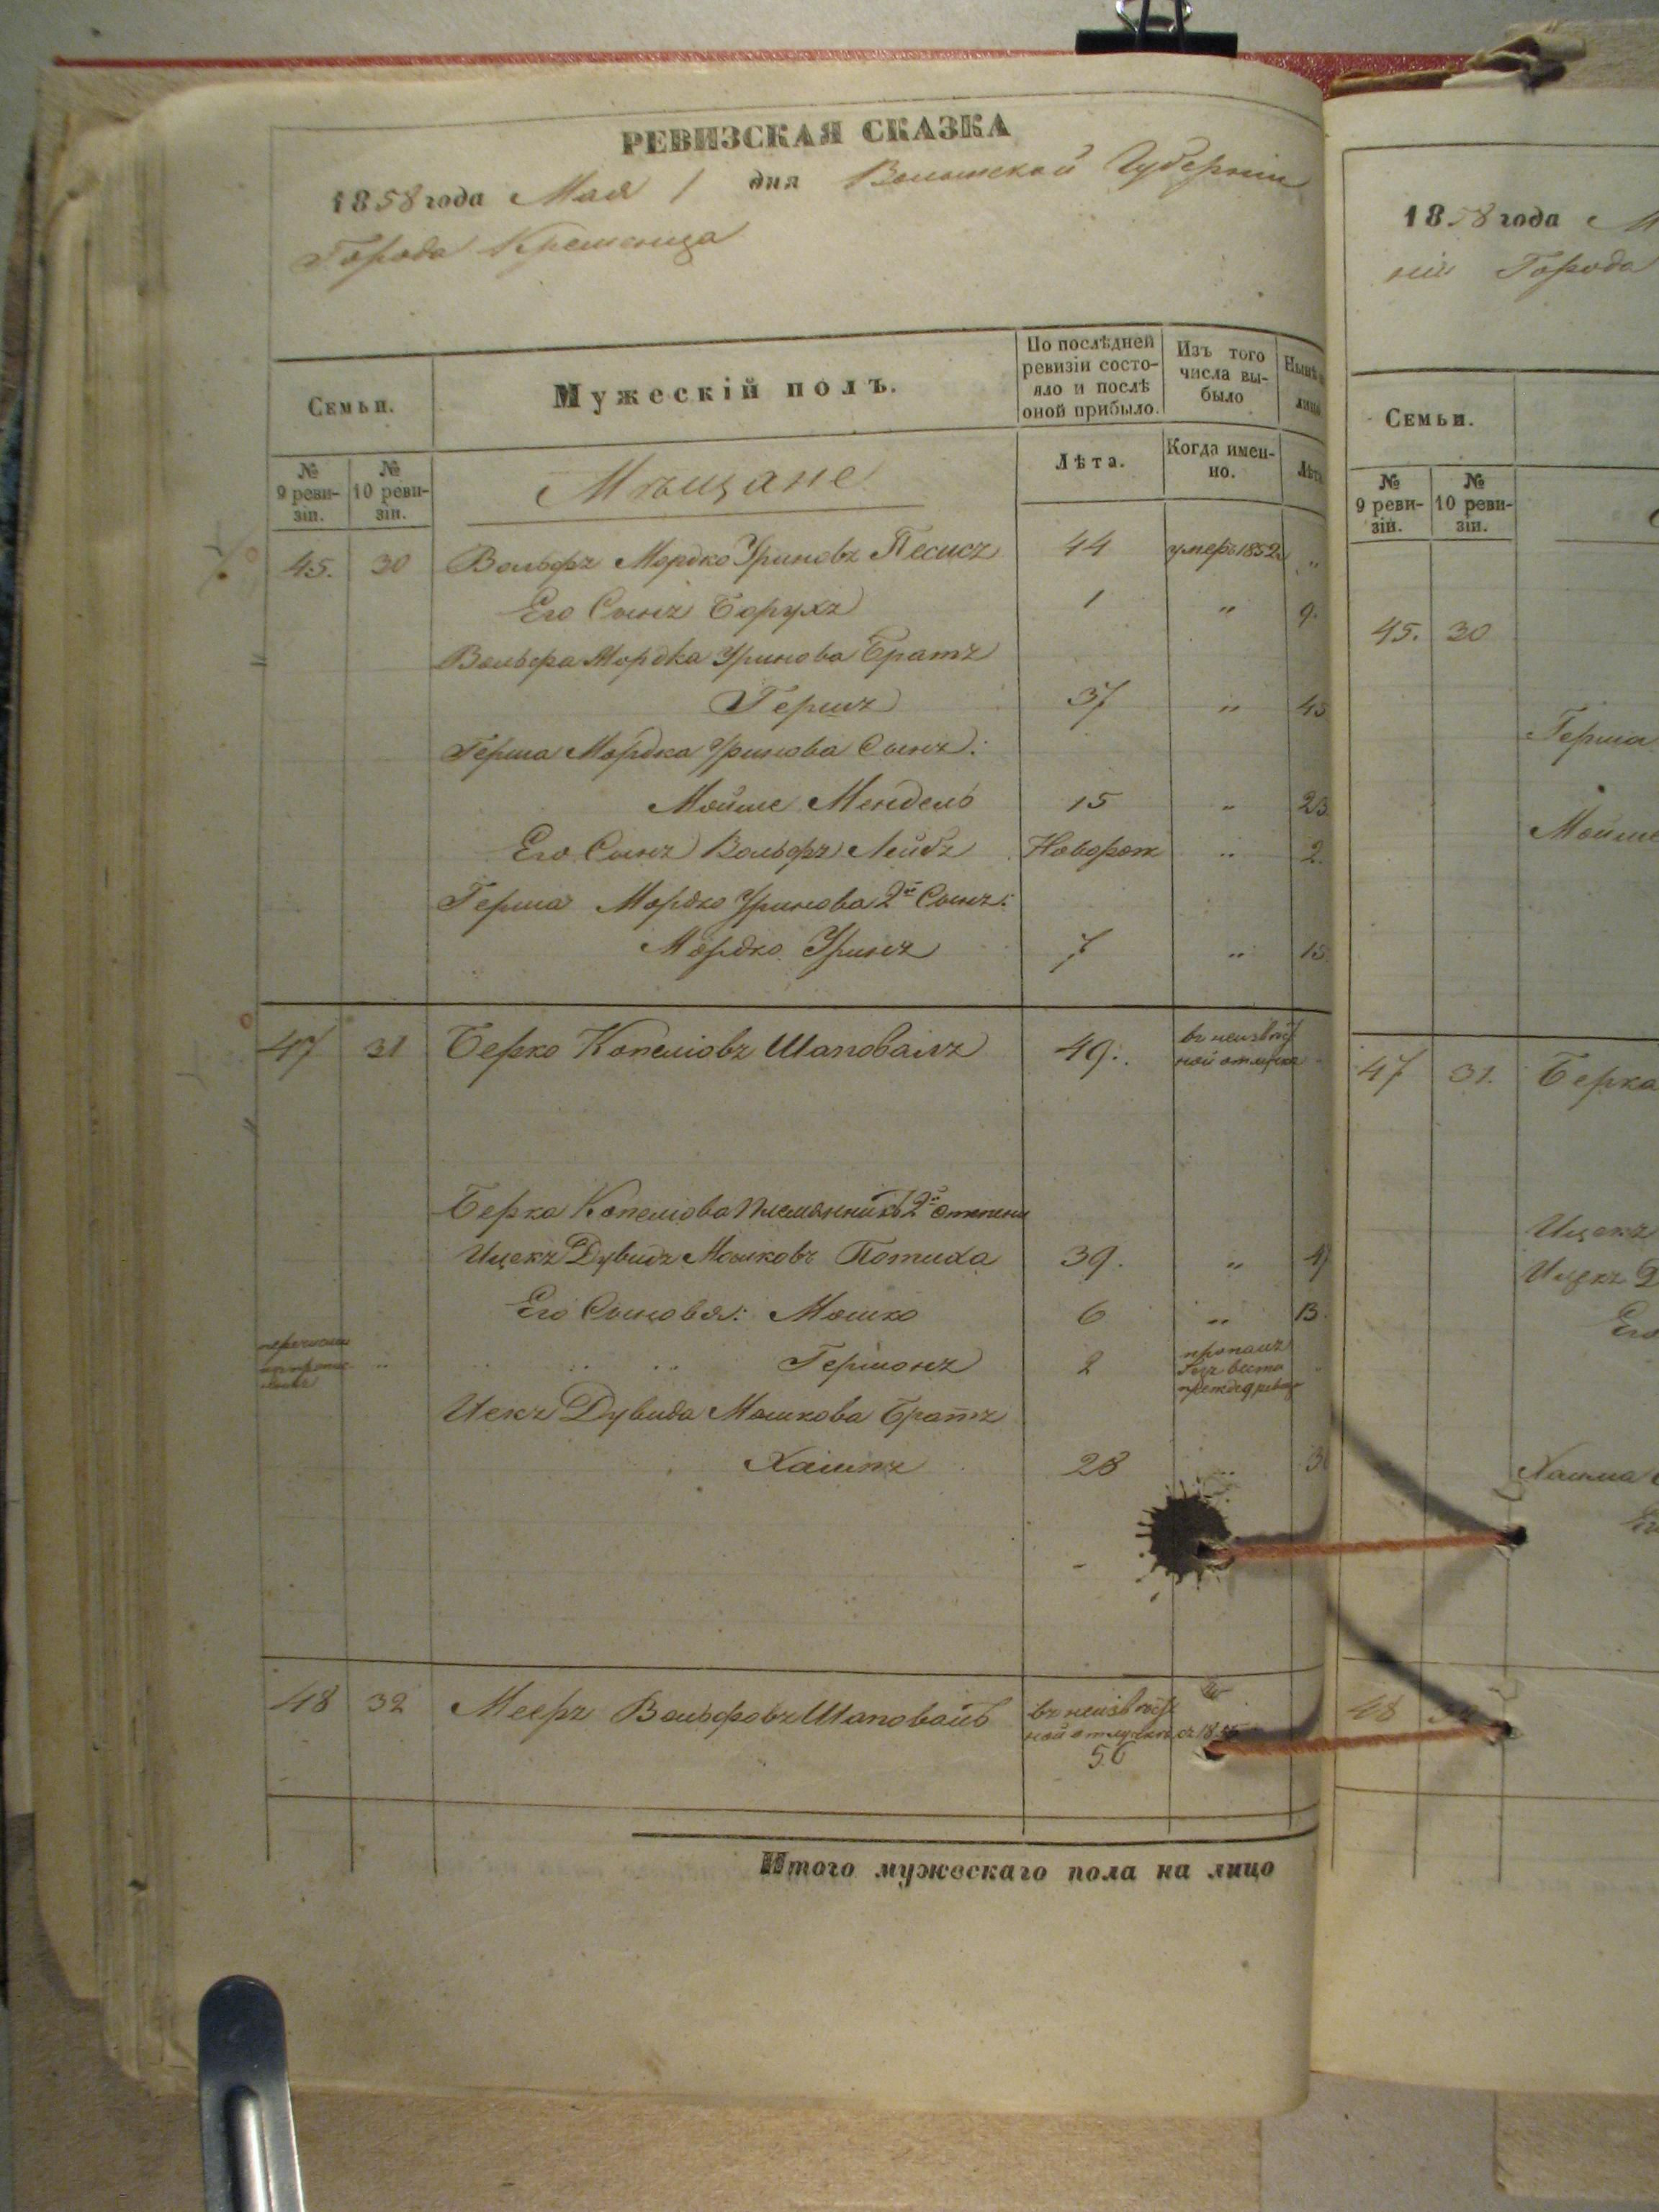 РЕВИЗСКАЯ СКАЗКА
1858 года Мая 1 дня Волынской Губерніи
Города Кременца
Семьи.
Мужескій полъ.
По послѣдней ревизіи состо-
яло и послѣ
оной прибыло.
Изъ того
числа вы-
было
Нынѣ
лицо
№
9 реви-
зіи.
№
10 реви-
зіи.
Мѣщане
Лѣта.
Когда имен-
но.
Лѣта
45. 30 Вольфъ Мордко Уриновъ Песисъ 44 умеръ 1852 "
Его Сынъ Борухъ 1 " 9.
Вольфа Мордка Уринова Братъ
Гершъ 37 " 45
Герша Мордка Уринова Сынъ:
Мойше Мендель 15 " 23
Его Сынъ Вольфъ Лейбъ Новорож " 2.
Герша Мордко Уринова 2й Сынъ:
Мордко Уринъ 7 " 15.
47 31 Берко Копеліовъ Шаповалъ 49. въ неизвѣст
ной отлучке
Берка Копеліова Племянникъ 2й степени
Ицекъ Дувидъ Мошковъ Потиха 39. " 47
Его Сыновья: Мошко 6 " 13.
Гершонъ 2 пропалъ
безъ вести
Ицекъ Дувида Мошкова Братъ
Хаимъ 28 "
48 32 Мееръ Вольфовъ Шаповалъ въ неизвѣст
ной отлучке съ
56
Итого мужескаго пола на лицо
1858 года М
ніи Города
Семьи.
№
9 реви-
зіи.
№
10 реви-
зіи.
45. 30
Герша
Мойше
47 31. Берка
Ицекъ
Ицекъ Д
Его
Хаима
48